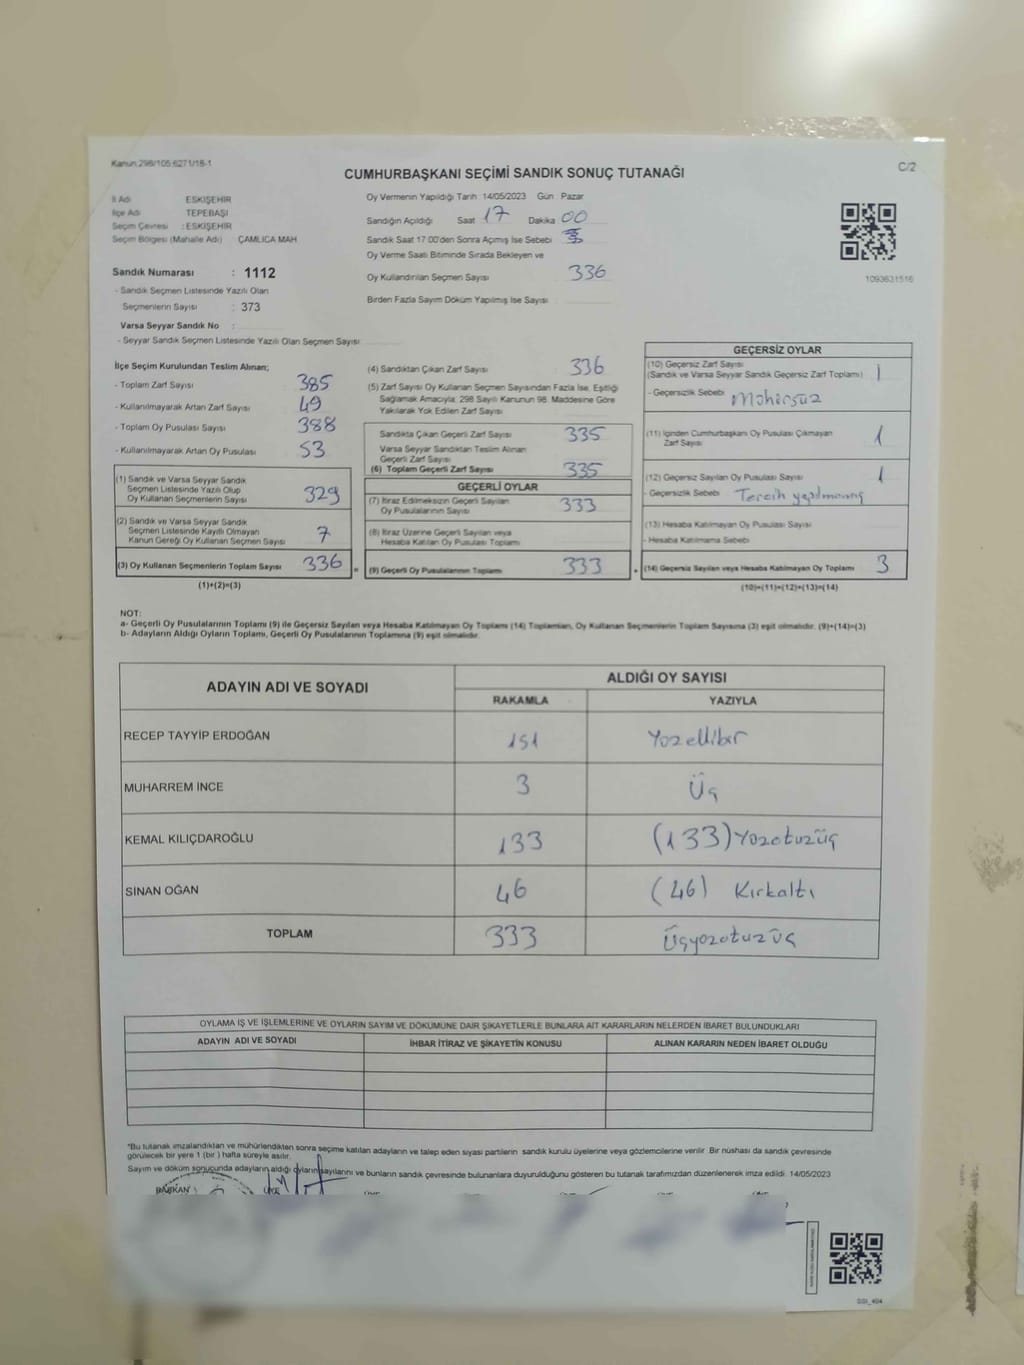 Kanun:298/105:6271/18-1
C/2
CUMHURBAŞKANI SEÇİMİ SANDIK SONUÇ TUTANAĞI
İl Adı ESKİŞEHİR
İlçe Adı TEPEBAŞI
Seçim Çevresi : ESKİŞEHİR
Seçim Bölgesi (Mahalle Adı) ÇAMLICA MAH
Sandık Numarası : 1112
- Sandık Seçmen Listesinde Yazılı Olan
Seçmenlerin Sayısı : 373
Varsa Seyyar Sandık No :
- Seyyar Sandık Seçmen Listesinde Yazılı Olan Seçmen Sayısı
Oy Vermenin Yapıldığı Tarih 14/05/2023 Gün Pazar
Sandığın Açıldığı Saat 17 Dakika 00
Sandık Saat 17:00'den Sonra Açımış İse Sebebi
Oy Verme Saati Bitiminde Sırada Bekleyen ve
Oy Kullandırılan Seçmen Sayısı 336
Birden Fazla Sayım Döküm Yapılmış İse Sayısı
1093631516
İlçe Seçim Kurulundan Teslim Alınan;
- Toplam Zarf Sayısı 385
- Kullanılmayarak Artan Zarf Sayısı 49
- Toplam Oy Pusulası Sayısı 388
- Kullanılmayarak Artan Oy Pusulası 53
(1) Sandık ve Varsa Seyyar Sandık
Seçmen Listesinde Yazılı Olup
Oy Kullanan Seçmenlerin Sayısı 329
(2) Sandık ve Varsa Seyyar Sandık
Seçmen Listesinde Kayıtlı Olmayan
Kanun Gereği Oy Kullanan Seçmen Sayısı 7
(3) Oy Kullanan Seçmenlerin Toplam Sayısı 336
(1)+(2)=(3)
(4) Sandıktan Çıkan Zarf Sayısı 336
(5) Zarf Sayısı Oy Kullanan Seçmen Sayısından Fazla İse, Eşitliği
Sağlamak Amacıyla; 298 Sayılı Kanunun 98. Maddesine Göre
Yakılarak Yok Edilen Zarf Sayısı
Sandıkta Çıkan Geçerli Zarf Sayısı 335
Varsa Seyyar Sandıktan Teslim Alınan
Geçerli Zarf Sayısı
(6) Toplam Geçerli Zarf Sayısı 335
GEÇERLİ OYLAR
(7) İtiraz Edilmeksizin Geçerli Sayılan
Oy Pusulalarının Sayısı 333
(8) İtiraz Üzerine Geçerli Sayılan veya
Hesaba Katılan Oy Pusulası Toplamı
= (9) Geçerli Oy Pusulalarının Toplamı 333
GEÇERSİZ OYLAR
(10) Geçersiz Zarf Sayısı
(Sandık ve Varsa Seyyar Sandık Geçersiz Zarf Toplamı) 1
- Geçersizlik Sebebi Mühürsüz
(11) İçinden Cumhurbaşkanı Oy Pusulası Çıkmayan
Zarf Sayısı 1
(12) Geçersiz Sayılan Oy Pusulası Sayısı 1
- Geçersizlik Sebebi Tercih yapılmamış
(13) Hesaba Katılmayan Oy Pusulası Sayısı
- Hesaba Katılmama Sebebi
+ (14) Geçersiz Sayılan veya Hesaba Katılmayan Oy Toplamı 3
(10)+(11)+(12)+(13)=(14)
NOT:
a- Geçerli Oy Pusulalarının Toplamı (9) ile Geçersiz Sayılan veya Hesaba Katılmayan Oy Toplamı (14) Toplamları, Oy Kullanan Seçmenlerin Toplam Sayısına (3) eşit olmalıdır. (9)+(14)=(3)
b- Adayların Aldığı Oyların Toplamı, Geçerli Oy Pusulalarının Toplamına (9) eşit olmalıdır.
ADAYIN ADI VE SOYADI ALDIĞI OY SAYISI
RAKAMLA YAZIYLA
RECEP TAYYİP ERDOĞAN 151 Yüzellibir
MUHARREM İNCE 3 Üç
KEMAL KILIÇDAROĞLU 133 (133) Yüzotuzüç
SİNAN OĞAN 46 (46) Kırkaltı
TOPLAM 333 Üçyüzotuzüç
OYLAMA İŞ VE İŞLEMLERİNE VE OYLARIN SAYIM VE DÖKÜMÜNE DAİR ŞİKAYETLERLE BUNLARA AİT KARARLARIN NELERDEN İBARET BULUNDUKLARI
ADAYIN ADI VE SOYADI İHBAR İTİRAZ VE ŞİKAYETİN KONUSU ALINAN KARARIN NEDEN İBARET OLDUĞU
*Bu tutanak imzalandıktan ve mühürlendikten sonra seçime katılan adayların ve talep eden siyasi partilerin sandık kurulu üyelerine veya gözlemcilerine verilir. Bir nüshası da sandık çevresinde
görülecek bir yere 1 (bir ) hafta süreyle asılır.
Sayım ve döküm sonucunda adayların aldığı oyların sayılarını ve bunların sandık çevresinde bulunanlara duyurulduğunu gösteren bu tutanak tarafımızdan düzenlenerek imza edildi. 14/05/2023
BAŞKAN